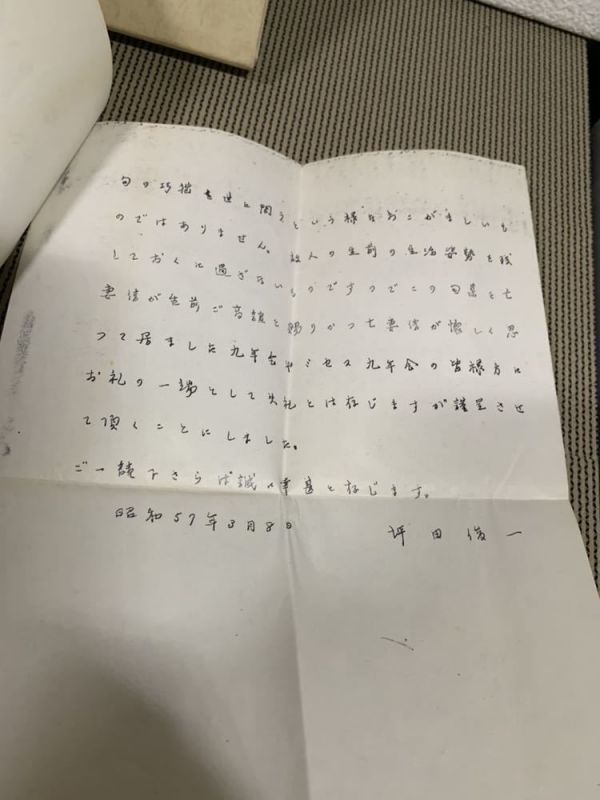 句の巧拙を世に問うという様なおこがましいも
のではありません。故人の生前の生活姿勢を残
しておくに過ぎないものですのでこの句集を亡
妻信が生前ご高誼を賜りかつ亡妻信が懐しく思
って居ました九年会やミセス九年会の皆様方に
お礼の一端として失礼とは存じますが謹呈させ
て頂くことにしました。
ご一読下さらば誠に幸甚と存じます。
昭和57年3月8日
坪田俊一